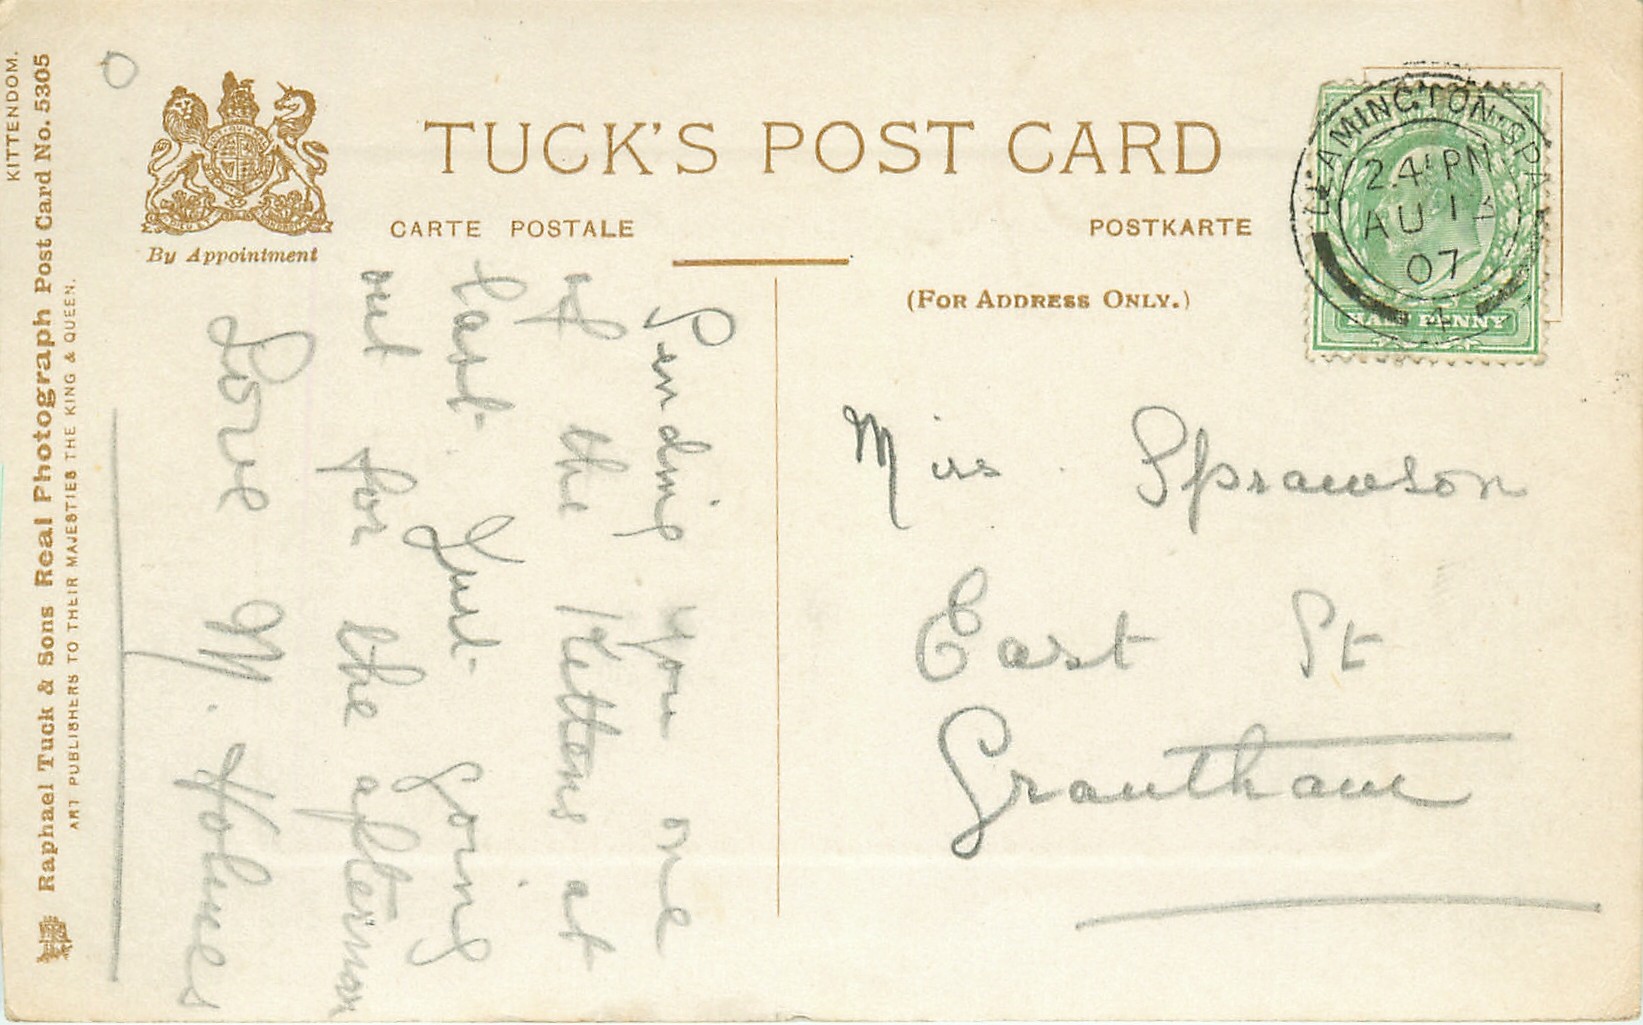 KITTENDOM.
Raphael Tuck & Sons Real Photograph Post Card No. 5305
ART PUBLISHERS TO THEIR MAJESTIES THE KING & QUEEN.
By Appointment
TUCK'S POST CARD
CARTE POSTALE
POSTKARTE
(FOR ADDRESS ONLY.)
LEAMINGTON SPA
2.4 PM
AU 13
07
4
HALF PENNY
Sending you one
of the Kittens at
last. Just going
out for the afternoon
Love M. Holmes
Miss Sprawson
East St
Grantham